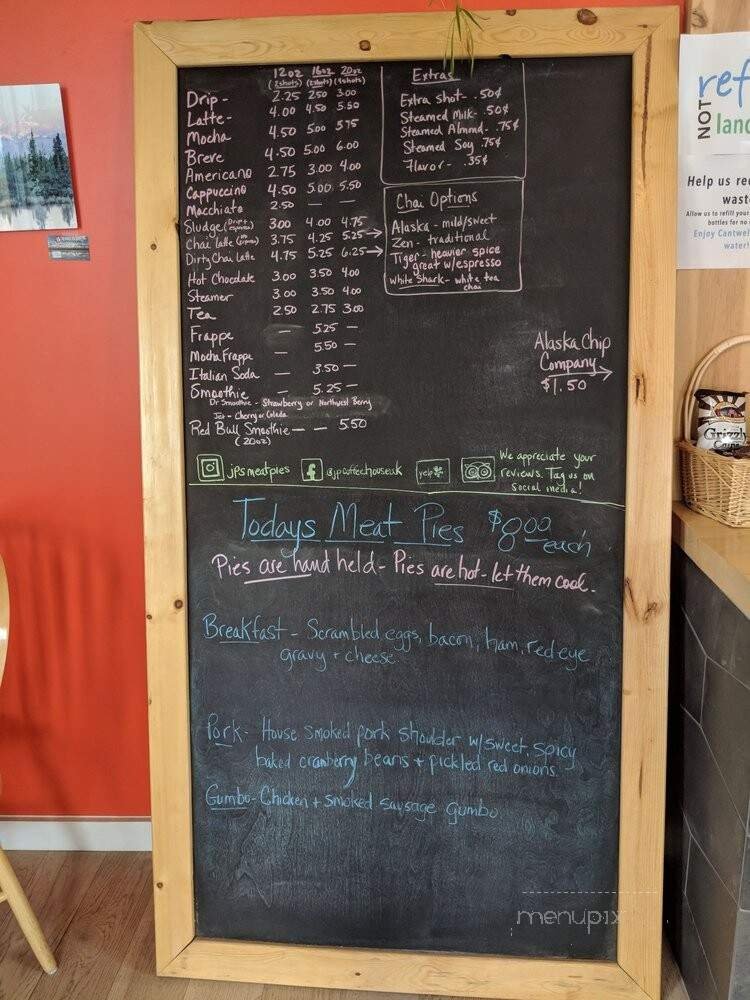 12oz 16oz 20oz
(2shots) (2shots) (4shots)
Drip - 2.25 2.50 3.00
Latte - 4.00 4.50 5.50
Mocha 4.50 5.00 5.75
Breve 4.50 5.00 6.00
Americano 2.75 3.00 4.00
Cappuccino 4.50 5.00 5.50
Macchiato 2.50 — —
Sludge (Drip + espresso) 3.00 4.00 4.75
Chai latte 3.75 4.25 5.25 →
Dirty Chai Latte 4.75 5.25 6.25 →
Hot Chocolate 3.00 3.50 4.00
Steamer 3.00 3.50 4.00
Tea 2.50 2.75 3.00
Frappe — 5.25 —
Mocha Frappe — 5.50 —
Italian Soda — 3.50 —
Smoothie — 5.25 —
Dr Smoothie - Strawberry or Northwest Berry
Jet - Cherry or Colada
Red Bull Smoothie — — 5.50
(20oz)
Extras
Extra shot - .50¢
Steamed Milk - .50¢
Steamed Almond - .75¢
Steamed Soy .75¢
Flavor - .35¢
Chai Options
Alaska - mild/sweet
Zen - traditional
Tiger - heavier spice
great w/espresso
White Shark - white tea
chai
Alaska Chip
Company
$1.50
jpsmeatpies
@jpcoffeehouseak
yelp
We appreciate your
reviews. Tag us on
social media!
Todays Meat Pies $8.00
each
Pies are hand held - Pies are hot - let them cool.
Breakfast - Scrambled eggs, bacon, ham, red eye
gravy + cheese
Pork - House smoked pork shoulder w/sweet, spicy
baked cranberry beans + pickled red onions
Gumbo - Chicken + smoked sausage gumbo
menupix
NOT
ref
land
Help us re
wast
Allow us to refill your
bottles for no
Enjoy Cantwel
water!
Grizzly
Chips